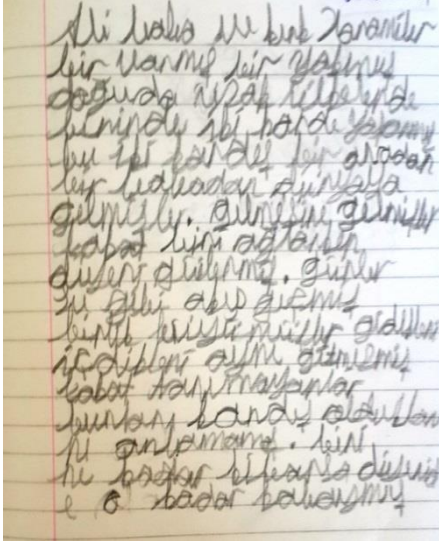 Ali baba ve kırk Haramiler
bir varmış bir yokmuş
doğuda uzak ülkelerde
birinde iki kardeş yaşarmış
bu iki kardeş bir anadan
bir babadan dünyaya
gelmişler. gelmesine gelmişler
fakat birini ağlarken
diğeri gülermiş. günler
su gibi akıp geçmiş
büyümüşler gidişleri
aynı gitmemiş
fakat tanımayanlar
bunların kardeş oldukları
nı anlamamış. biri
ne kadar diğeri
o kadar